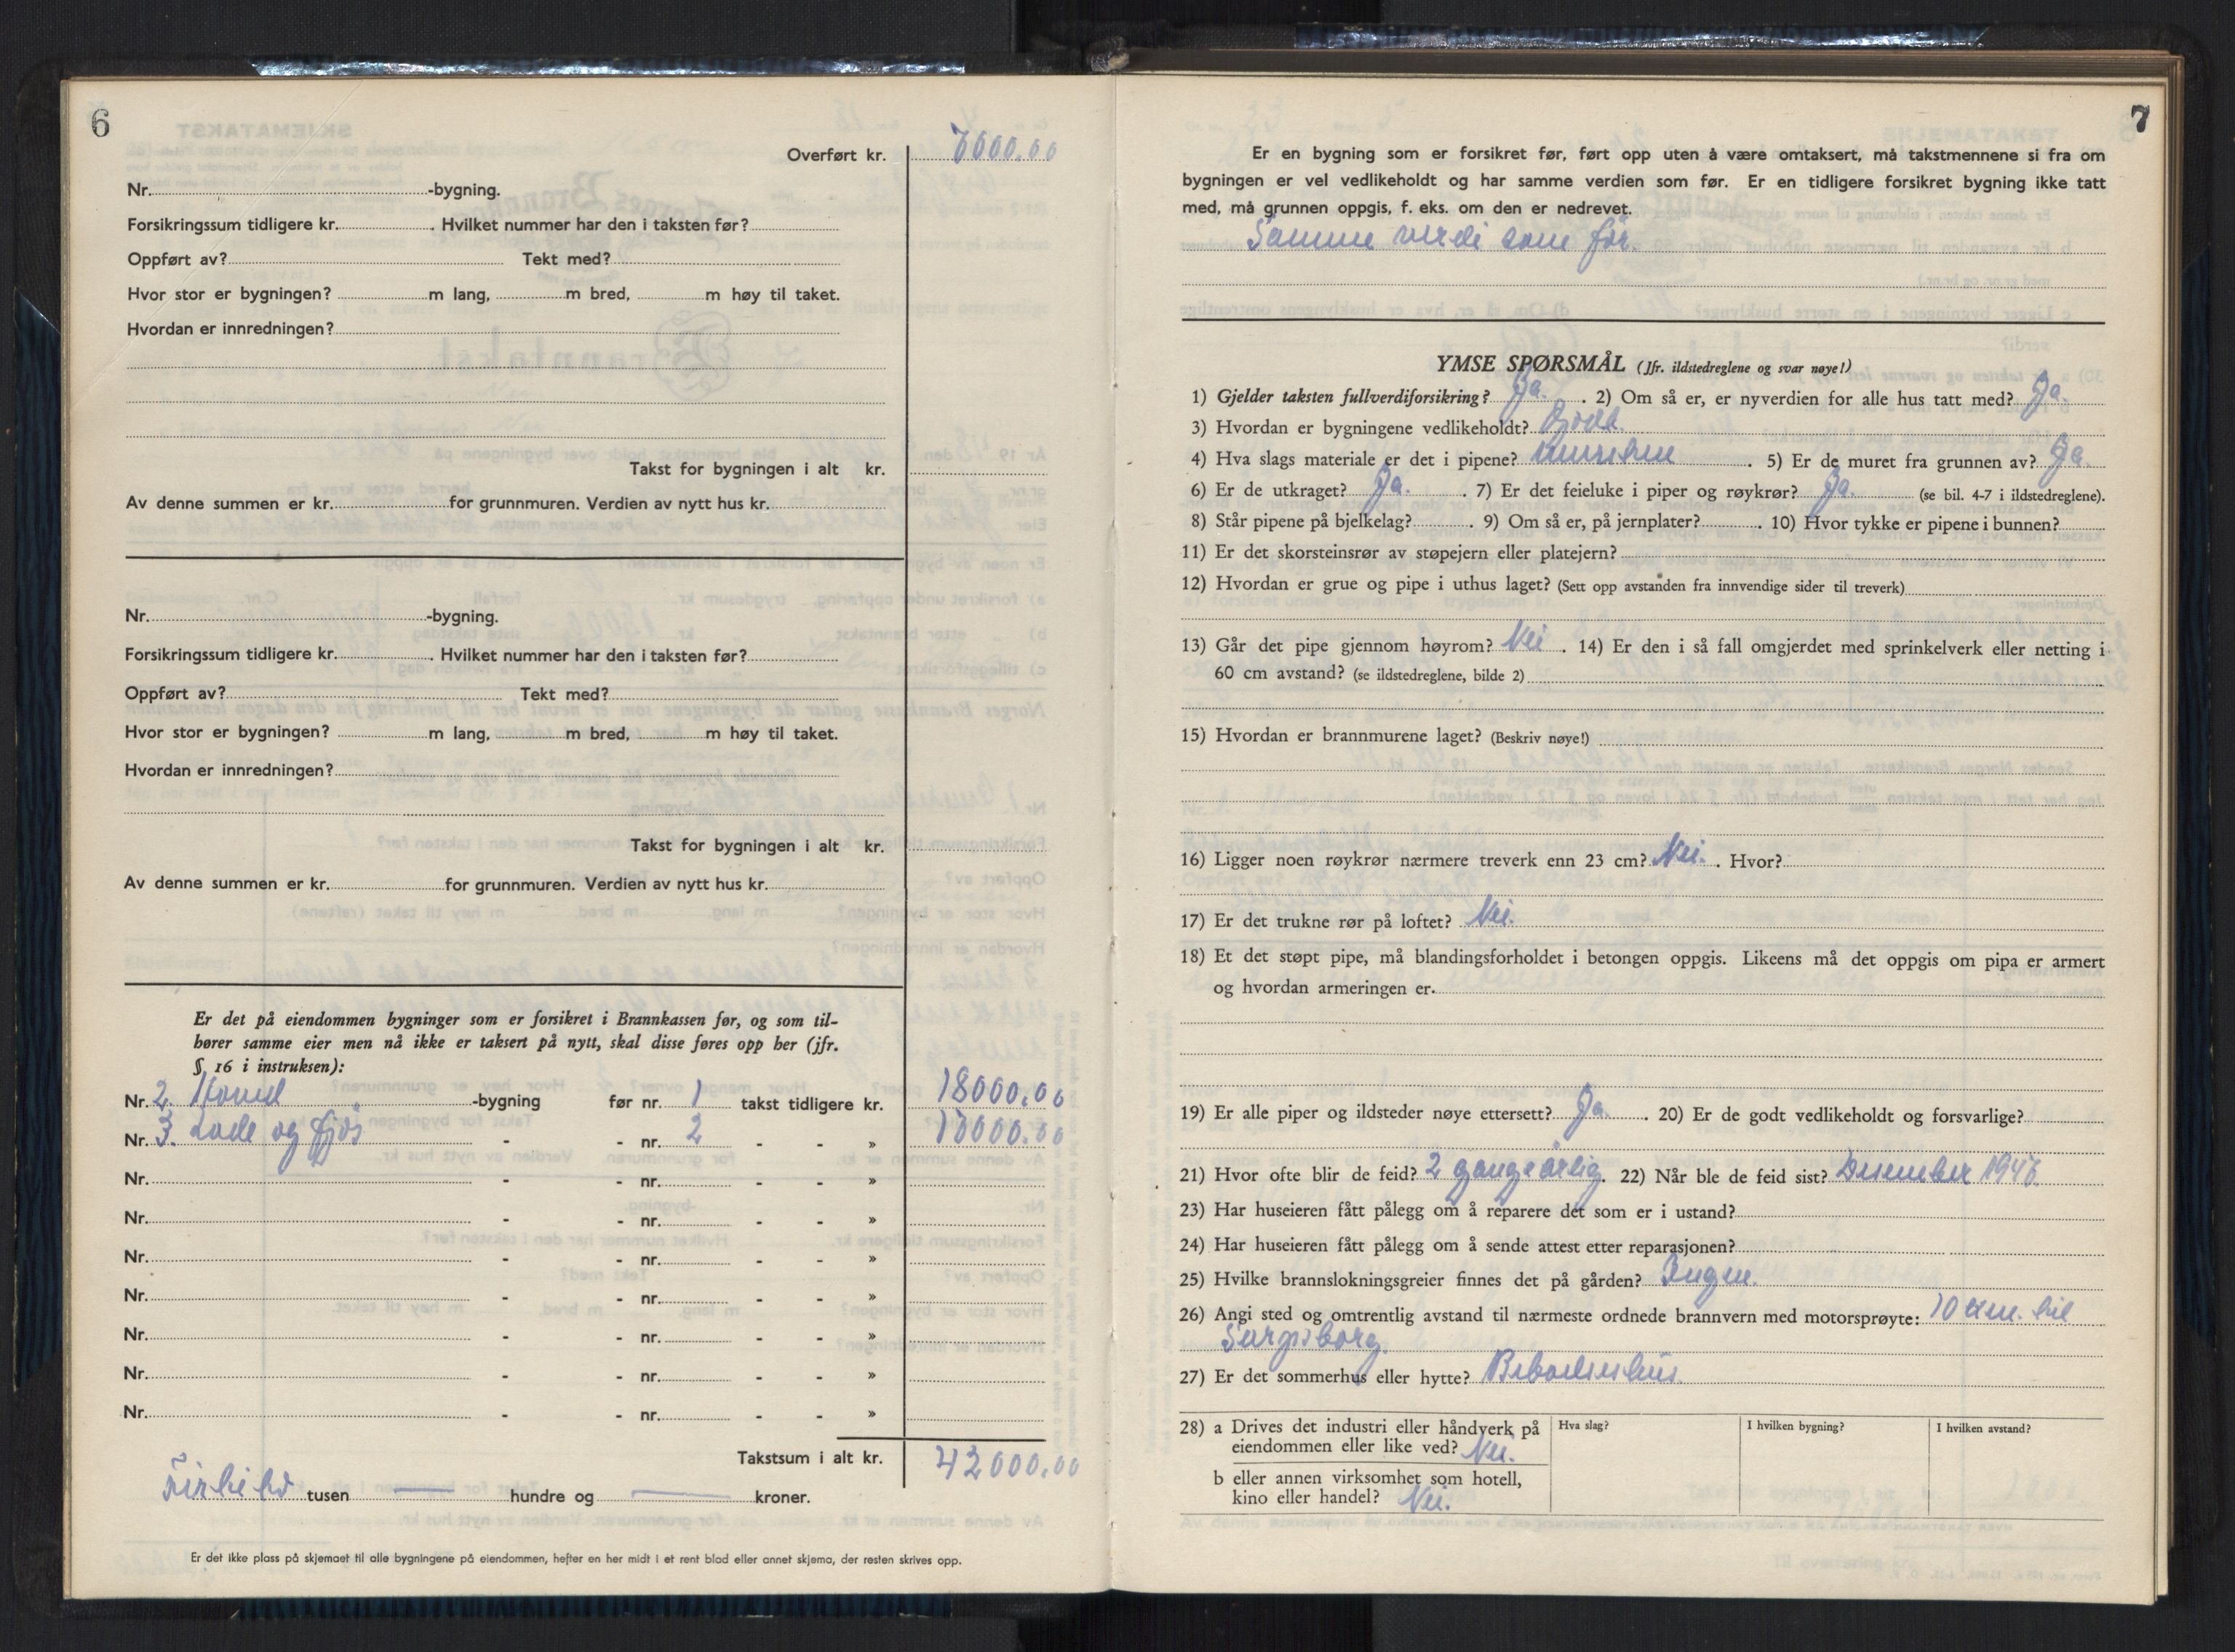 6
Overført kr. 7000.00
Nr. -bygning.
Forsikringssum tidligere kr. . Hvilket nummer har den i taksten før?
Oppført av? Tekt med?
Hvor stor er bygningen? m lang, m bred, m høy til taket.
Hvordan er innredningen?
Takst for bygningen i alt kr.
Av denne summen er kr. for grunnmuren. Verdien av nytt hus kr.
Nr. -bygning.
Forsikringssum tidligere kr. . Hvilket nummer har den i taksten før?
Oppført av? Tekt med?
Hvor stor er bygningen? m lang, m bred, m høy til taket.
Hvordan er innredningen?
Takst for bygningen i alt kr.
Av denne summen er kr. for grunnmuren. Verdien av nytt hus kr.
Er det på eiendommen bygninger som er forsikret i Brannkassen før, og som til-
hører samme eier men nå ikke er taksert på nytt, skal disse føres opp her (jfr.
§ 16 i instruksen):
Nr. 2. Hoved -bygning før nr. 1 takst tidligere kr. 18000.00
Nr. 3. Lade og fjøs - - nr. 2 - - » 17000.00
Nr. - - nr. - - »
Nr. - - nr. - - »
Nr. - - nr. - - »
Nr. - - nr. - - »
Nr. - - nr. - - »
Nr. - - nr. - - »
Nr. - - nr. - - »
Takstsum i alt kr. 42000.00
Firtito tusen — hundre og — kroner.
Er det ikke plass på skjemaet til alle bygningene på eiendommen, hefter en her midt i et rent blad eller annet skjema, der resten skrives opp.
7
Er en bygning som er forsikret før, ført opp uten å være omtaksert, må takstmennene si fra om
bygningen er vel vedlikeholdt og har samme verdien som før. Er en tidligere forsikret bygning ikke tatt
med, må grunnen oppgis, f. eks. om den er nedrevet.
Samme verdi som før.
YMSE SPØRSMÅL (Jfr. ildstedreglene og svar nøye!)
1) Gjelder taksten fullverdiforsikring? Ja. . 2) Om så er, er nyverdien for alle hus tatt med? Ja.
3) Hvordan er bygningene vedlikeholdt? Godt.
4) Hva slags materiale er det i pipene? Murstein . 5) Er de muret fra grunnen av? Ja.
6) Er de utkraget? Ja. . 7) Er det feieluke i piper og røykrør? Ja. (se bil. 4-7 i ildstedreglene).
8) Står pipene på bjelkelag? . 9) Om så er, på jernplater? . 10) Hvor tykke er pipene i bunnen?
11) Er det skorsteinsrør av støpejern eller platejern?
12) Hvordan er grue og pipe i uthus laget? (Sett opp avstanden fra innvendige sider til treverk)
13) Går det pipe gjennom høyrom? Nei . 14) Er den i så fall omgjerdet med sprinkelverk eller netting i
60 cm avstand? (se ildstedreglene, bilde 2)
15) Hvordan er brannmurene laget? (Beskriv nøye!)
16) Ligger noen røykrør nærmere treverk enn 23 cm? Nei. . Hvor?
17) Er det trukne rør på loftet? Nei.
18) Et det støpt pipe, må blandingsforholdet i betongen oppgis. Likeens må det oppgis om pipa er armert
og hvordan armeringen er.
19) Er alle piper og ildsteder nøye ettersett? Ja . 20) Er de godt vedlikeholdt og forsvarlige?
21) Hvor ofte blir de feid? 2 gange årlig. 22) Når ble de feid sist? Desember 1947.
23) Har huseieren fått pålegg om å reparere det som er i ustand?
24) Har huseieren fått pålegg om å sende attest etter reparasjonen?
25) Hvilke brannslokningsgreier finnes det på gården? Ingen.
26) Angi sted og omtrentlig avstand til nærmeste ordnede brannvern med motorsprøyte: 10 km. til
Sarpsborg.
27) Er det sommerhus eller hytte? Beboelseshus.
28) a Drives det industri eller håndverk på Hva slag? I hvilken bygning? I hvilken avstand?
eiendommen eller like ved? Nei.
b eller annen virksomhet som hotell,
kino eller handel? Nei.